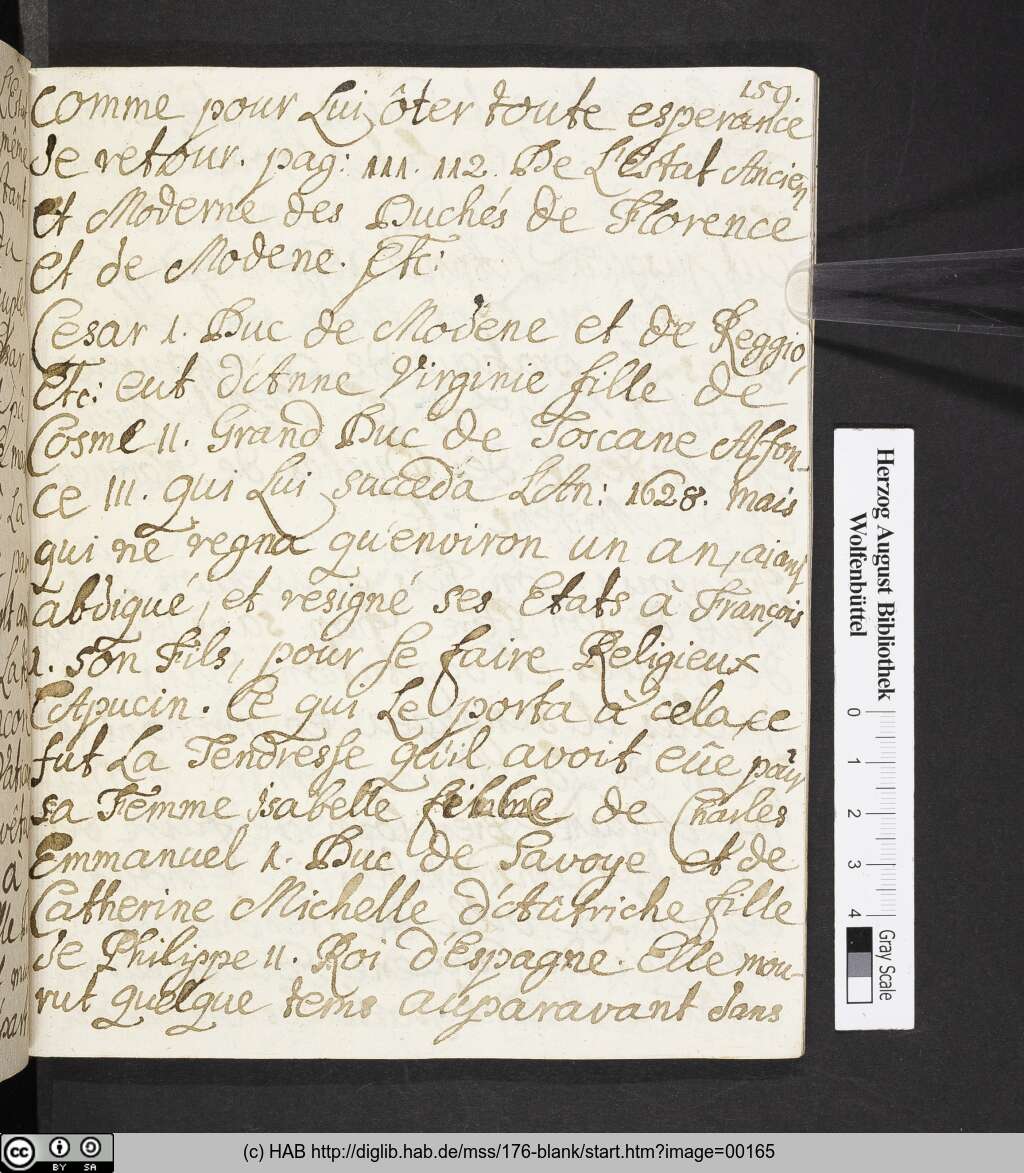 159.
comme pour Lui ôter toute esperance
de retour. pag: 111. 112. De L'Estat Ancien
et Moderne des Duchés de Florence
et de Modene. Etc:
Cesar 1. Duc de Modene et de Reggio
Etc: eut d'Anne Virginie fille de
Cosme II. Grand Duc de Toscane Alfon-
ce III. qui Lui succeda L'An: 1628. mais
qui ne regna qu'environ un an, aiant
abdiqué, et resigné ses Etats à François
1. son Fils, pour se faire Religieux
Capucin. Ce qui Le porta à cela, ce
fut La Tendresse qu'il avoit eûe pour
sa Femme isabelle fille de Charles
Emmanuel 1. Duc de Savoye et de
Catherine Michelle d'Autriche fille
de Philippe II. Roi d'Espagne. Elle mou-
rut quelque tems auparavant dans
Herzog August Bibliothek
Wolfenbüttel
0 1 2 3 4
Gray Scale
cc BY SA
(c) HAB http://diglib.hab.de/mss/176-blank/start.htm?image=00165